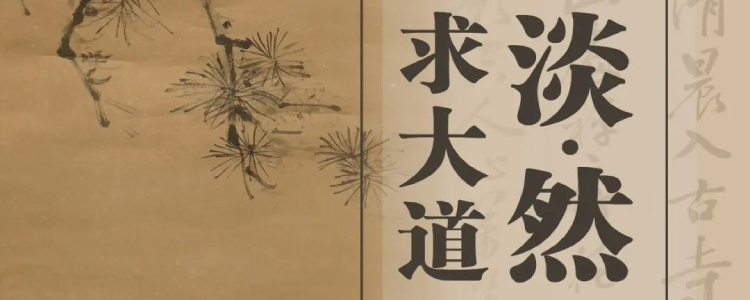 清晨入古寺
淡·然
求大道